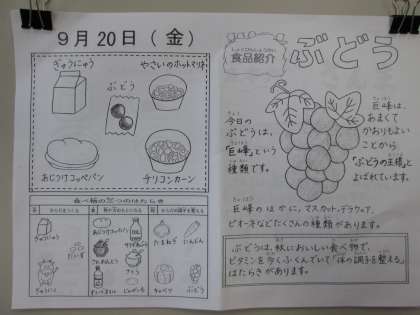 9月20日(金)
ぎゅうにゅう
やさいのホットマリネ
ぶどう
あじつけコッペパン
チリコンカーン
食べ物の三つのはたらき
ぎゅうにゅう
あじつけコッペパン
たまねぎ
にんじん
キャベツ
ぶどう
食品紹介
ぶどう
今日の
ぶどうは、
「巨峰」という
種類です。
巨峰は、
あまくて
かおりもよい
ことから
「ぶどうの王様」と
よばれています。
巨峰のほかに、マスカット、デラウェア、
ピオーネなどたくさんの種類があります。
ぶどうは、秋においしい食べ物で、
ビタミンを多くふくんでいて「体の調子を整える」
はたらきがあります。